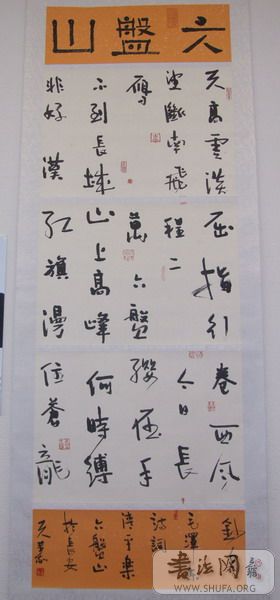 六盤山
天高雲淡
望斷南飛
雁
不到長城
非好漢
屈指行
程二
萬六盤
山上高峰
紅旗漫
卷西風
今日長
纓在手
何時縛
住蒼龍
毛澤
詩詞
清平樂
六盤山
於長安
書法網
WWW.SHUFA.ORG